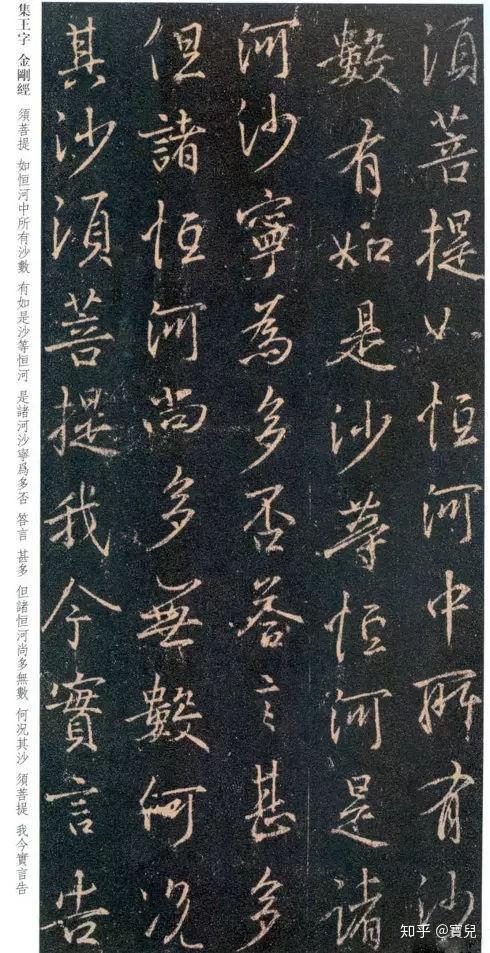 須菩提如恒河中所有沙
數有如是沙等恒河是諸
河沙寧為多否荅言甚多
但諸恒河尚多無數何况
其沙須菩提我今實言告
集王字 金剛經 須菩提 如恒河中所有沙數 有如是沙等恒河 是諸河沙寧爲多否 答言 甚多 但諸恒河尚多無數 何况其沙 須菩提 我今實言告
知乎 @寶兒